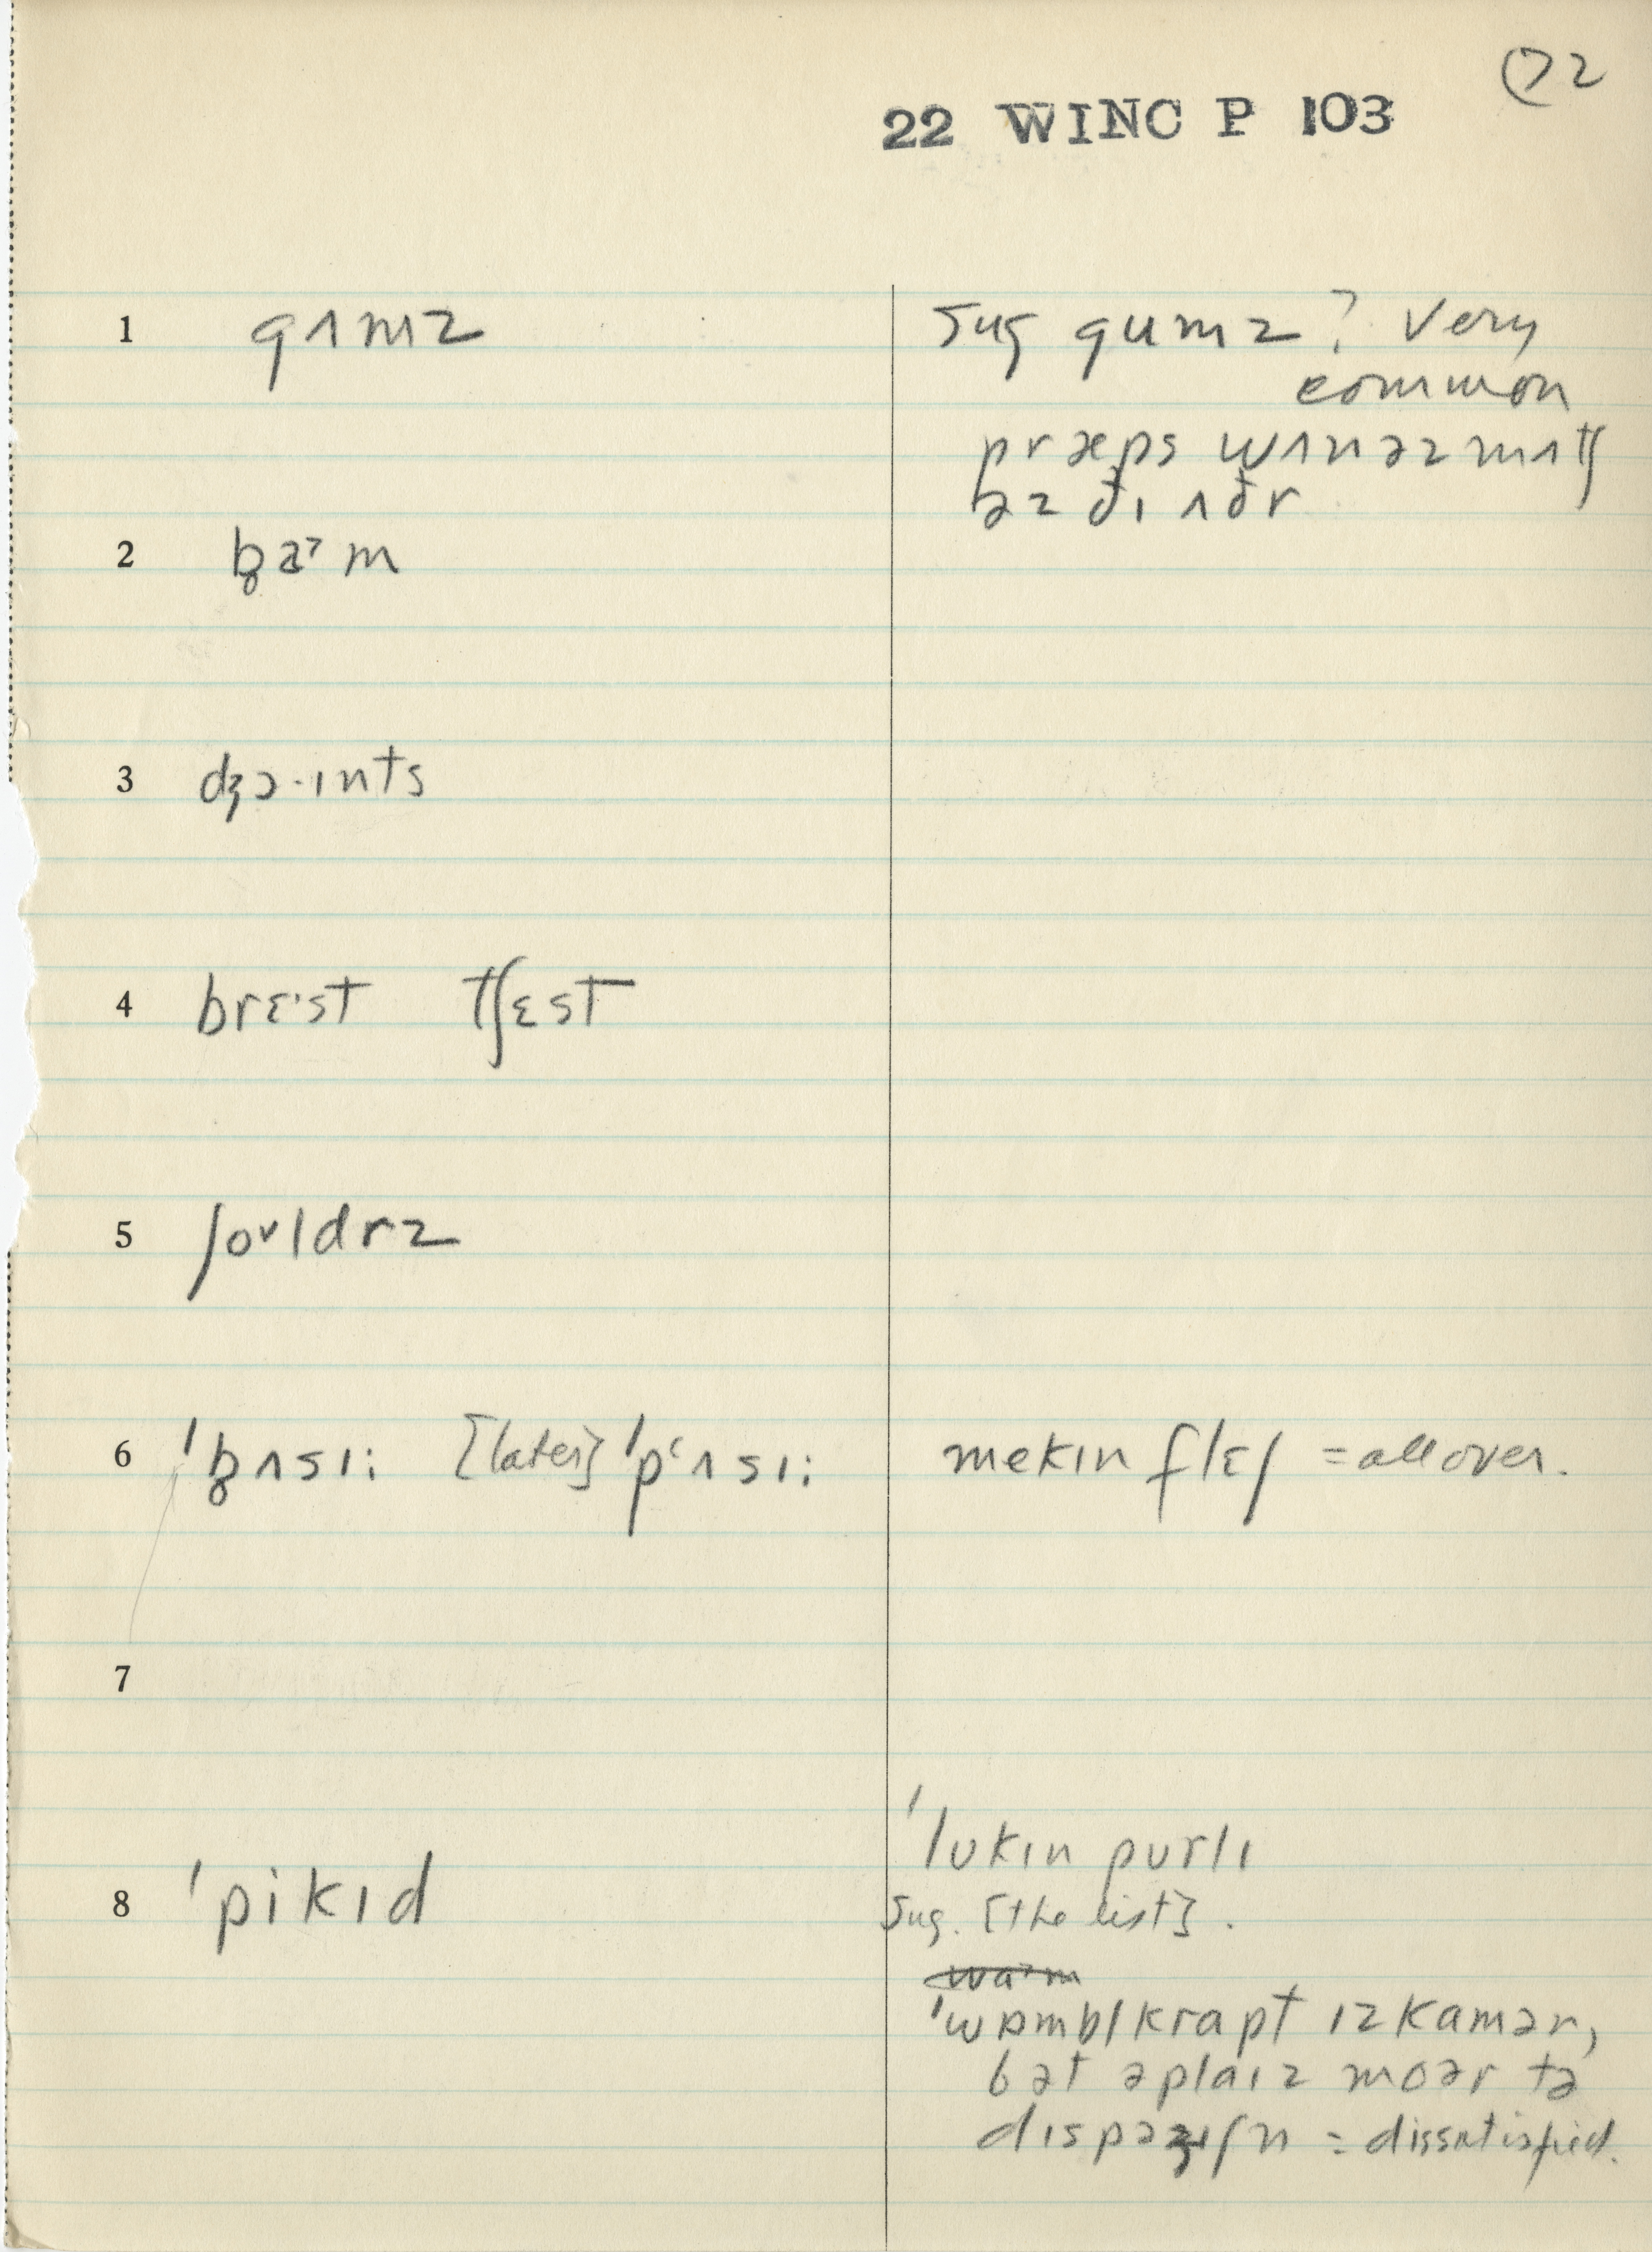 (72
22 WINC P 103
1 gʌmz
Sug gumz? Very
common
præps wʌnəzmʌtʃ
əz ðɪ ʌðr
2 b̥aˀm
3 dʒɔ·ɪnts
4 brɛ·st tʃɛst
5 ʃoᵛldrz
6 ˈb̥ʌsɪi [later] ˈpʻʌsɪi
mekɪn flɛʃ = all over.
7
8 ˈpikɪd
ˈlʊkɪn pʊrlɪ
Sug. [the list].
ˈwɒmblkrapt ɪz kamər,
bət əplaɪz moər tə
dɪspəzɪʃn = dissatisfied.